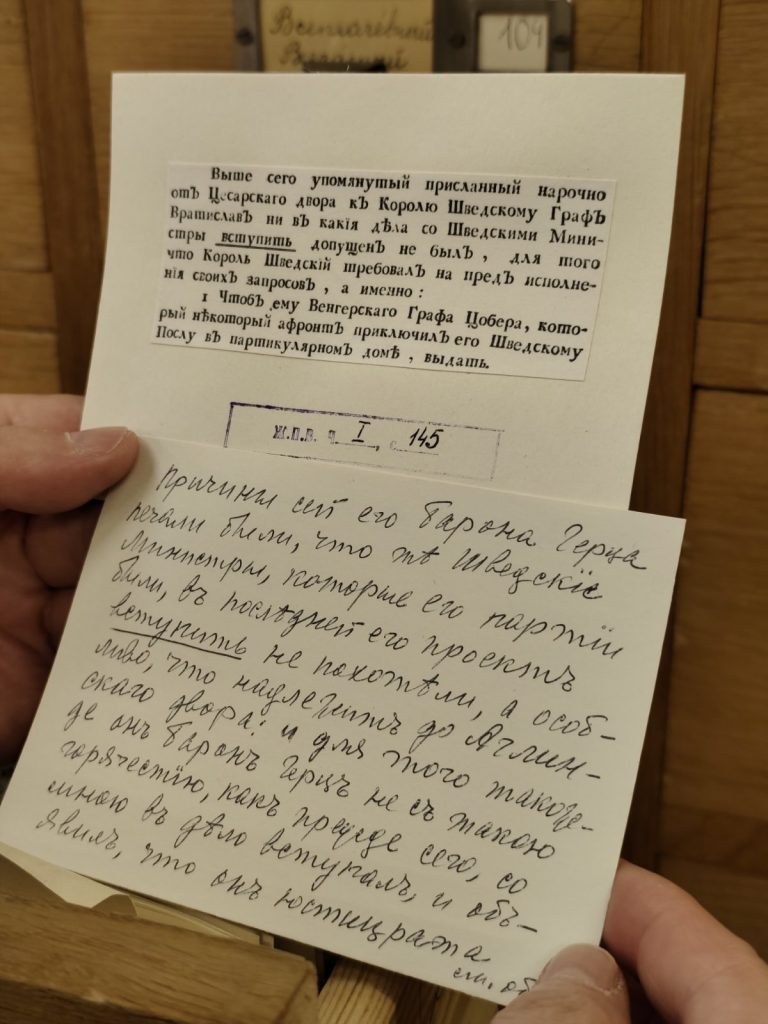 Всепачевный
104
Выше сего упомянутый присланный нарочно
отЪ Цесарскаго двора кЪ Королю Шведскому ГрафЪ
ВратиславЪ ни вЪ какія дѣла со Шведскими Мини-
стры вступить допущенЪ не былЪ, для того
что Король Шведскій требовалЪ на предЪ исполне-
нія своихЪ запросовЪ, а именно:
1 ЧтобЪ ему Венгерскаго Графа Цобера, кото-
рый нѣкоторый афронтЪ приключилЪ его Шведскому
Послу вЪ партикулярномЪ домѣ, выдать.
Ж.П.В. ч I, с. 145
Причины сей его барона Герца
печали были, что тѣ Шведскіе
Министры, которые его партіи
были, въ послѣдней его проектъ
вступить не похотѣли, а особ-
ливо, что надлежитъ до Аглин-
скаго двора: и для того такоже-
де онъ баронъ Герцъ не съ такою
горячестію, какъ прежде сего, со
мною въ дѣло вступалъ, и объ-
явилъ, что онъ юстицрата
см. об